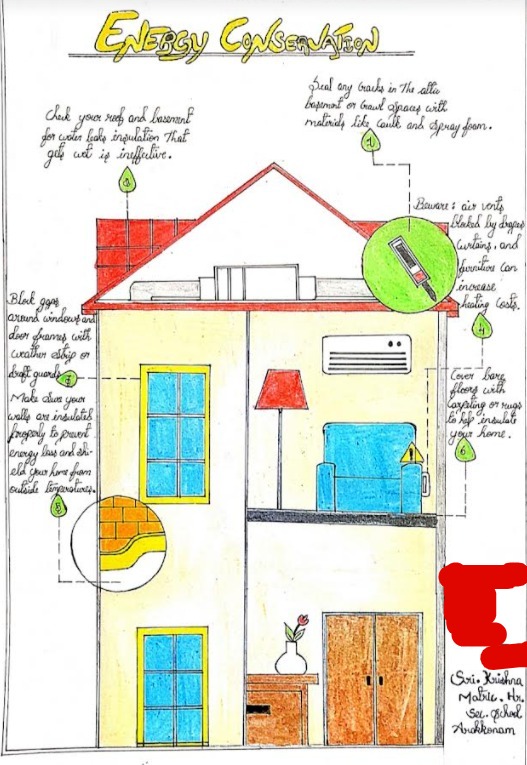 ENERGY CONSERVATION
Seal any cracks in The attic
basement or Crawl Spaces with
materials like Caulk and Spray foam.
1
Check your roof and basement
for water leaks insulation That
gets wet is ineffective.
3
Beware : air vents
blocked by drapes
Curtains, and
furniture can
increase
heating Costs.
4
Block gaps
around windows and
door frames with
weather strip or
draft guards
2
Make sure your
walls are insulated
properly to prevent
energy loss and shi-
eld your home from
outside temperatures.
5
Cover bare
floors with
Carpeting or rugs
to help insulate
your home.
6
Sri. Krishna
Matric. Hr.
Sec. School
Arakkonam